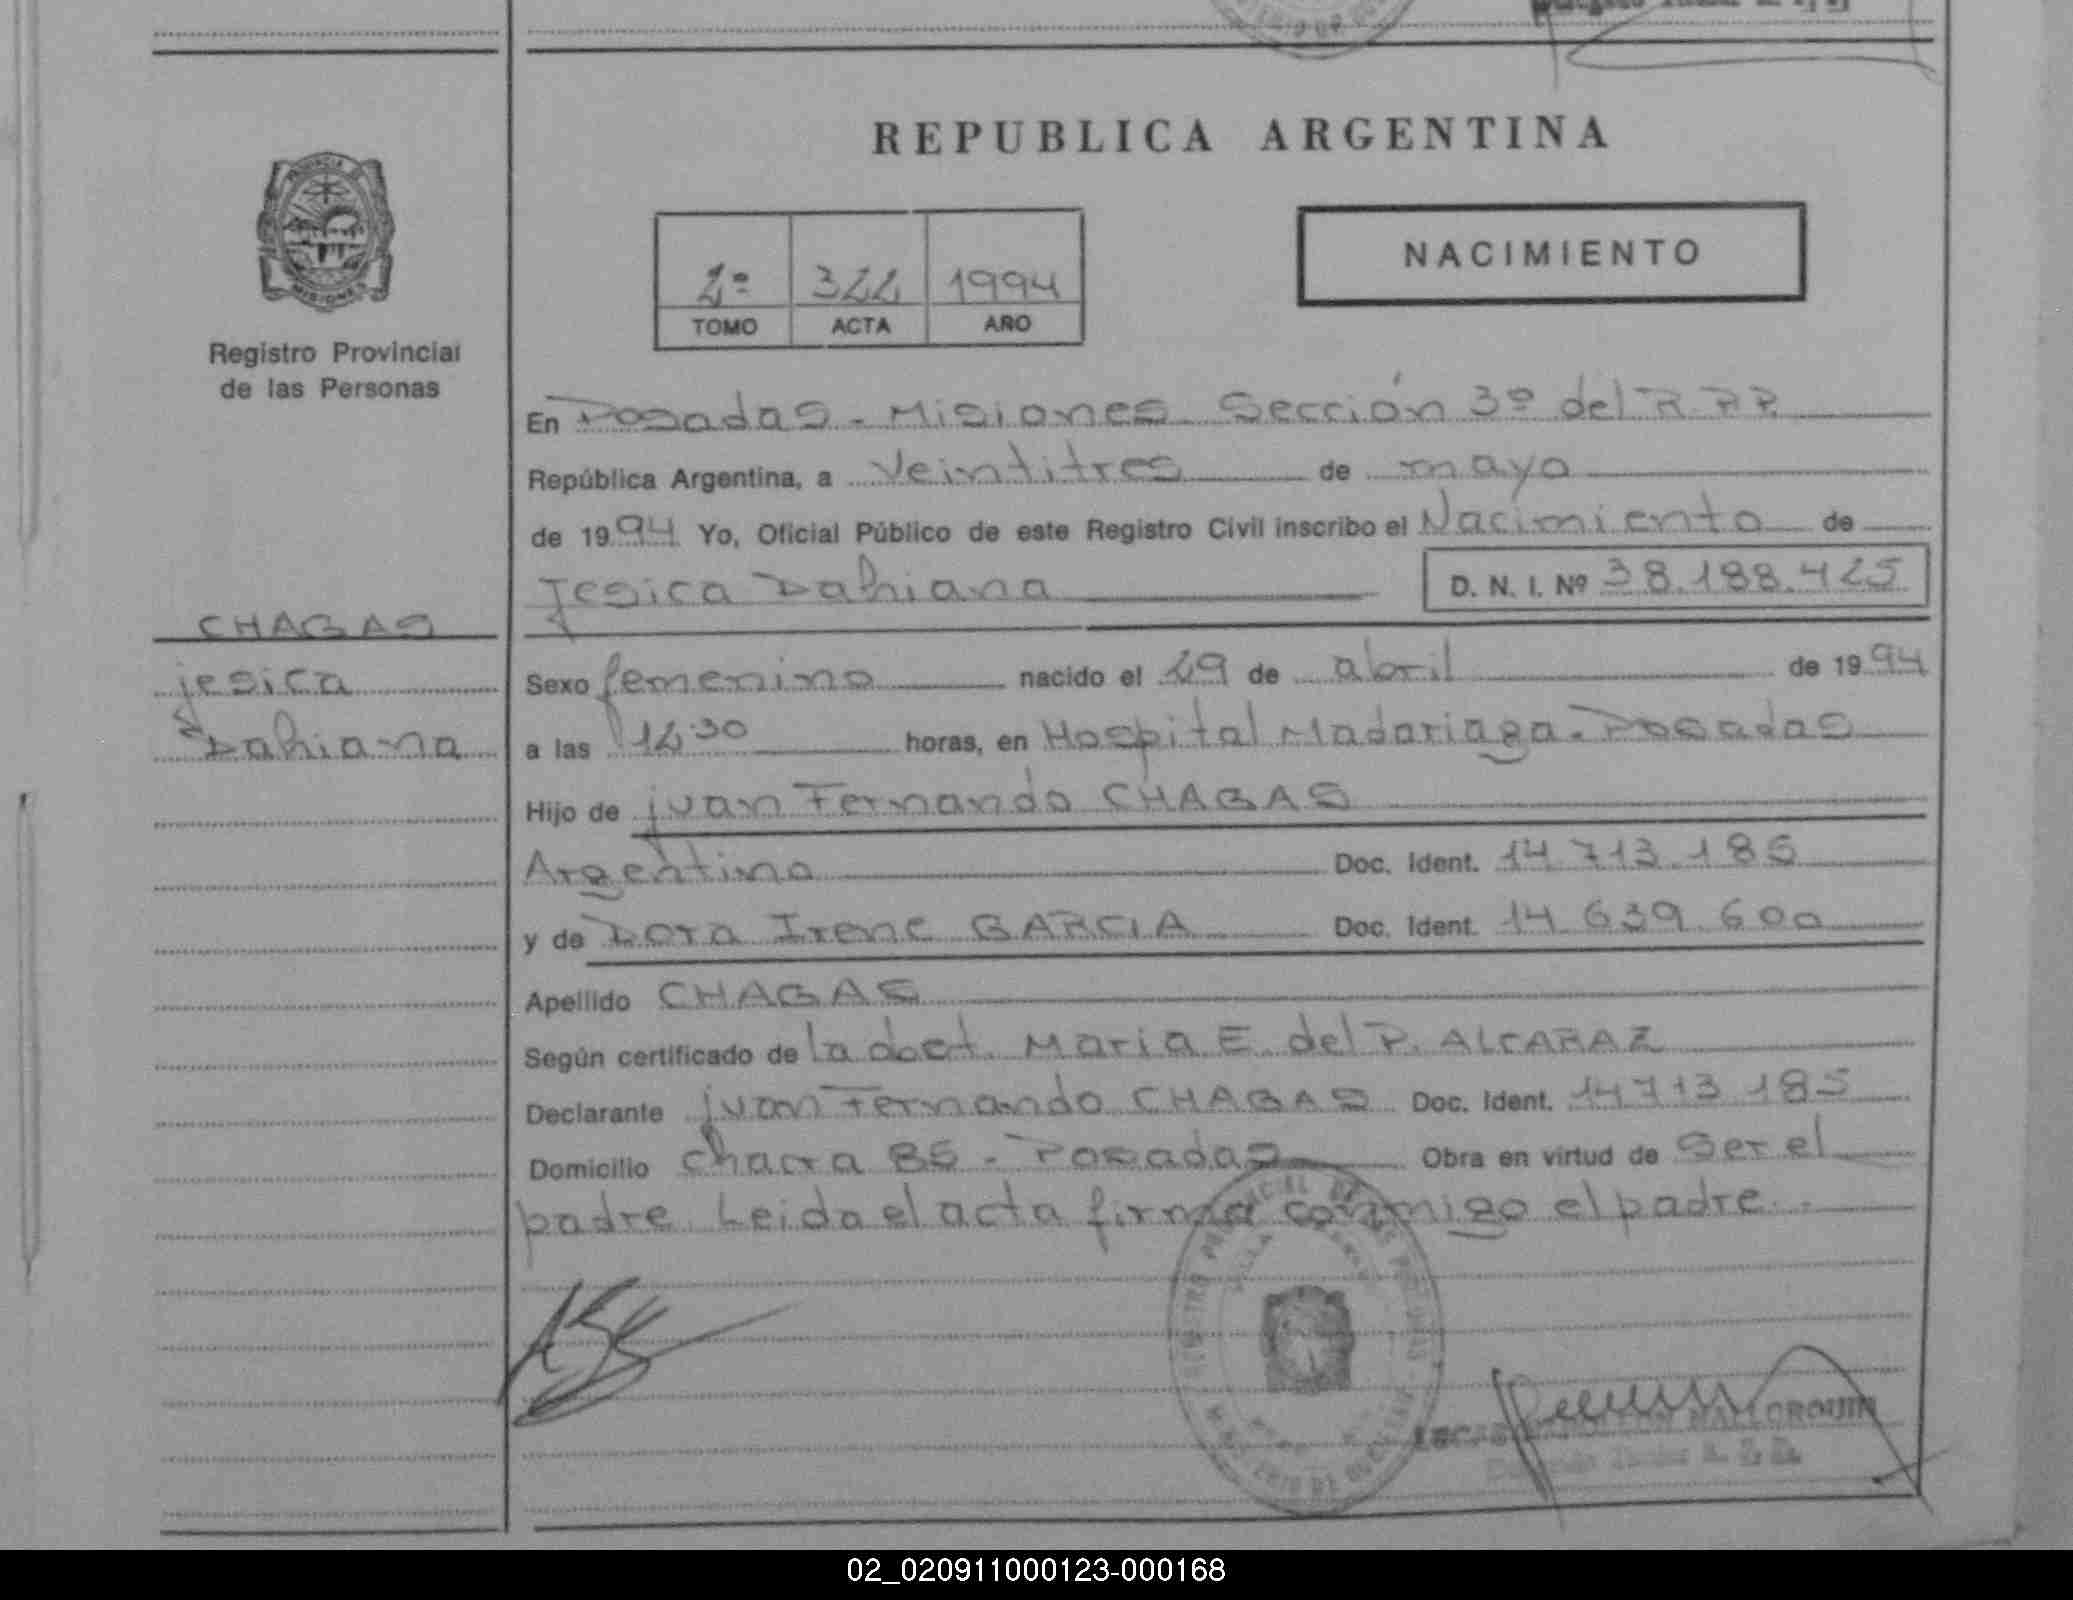 REPUBLICA ARGENTINA
NACIMIENTO
2º 322 1994
TOMO ACTA AÑO
PROVINCIA DE
MISIONES
Registro Provincial
de las Personas
En Posadas - Misiones Sección 3º del R.P.P.
República Argentina, a Veintitres de mayo
de 1994 Yo, Oficial Público de este Registro Civil inscribo el Nacimiento de
Jesica Dahiana D. N. I. Nº 38.188.425
CHAGAS
jesica
Dahiana
Sexo femenino nacido el 29 de abril de 1994
a las 12 30 horas, en Hospital Madariaga - Posadas
Hijo de juan Fernando CHAGAS
Argentino Doc. Ident. 14.713.185
y de Dora Irene GARCIA Doc. Ident. 14.639.600
Apellido CHAGAS
Según certificado de la doct. Maria E. del P. ALCARAZ
Declarante juan Fernando CHAGAS Doc. Ident. 14713185
Domicilio chacra 85 - Posadas Obra en virtud de Ser el
padre. Leida el acta firma conmigo el padre.-
REGISTRO PROVINCIAL DE LAS PERSONAS
MINISTERIO DE GOBIERNO
MALLORQUIN
02_020911000123-000168